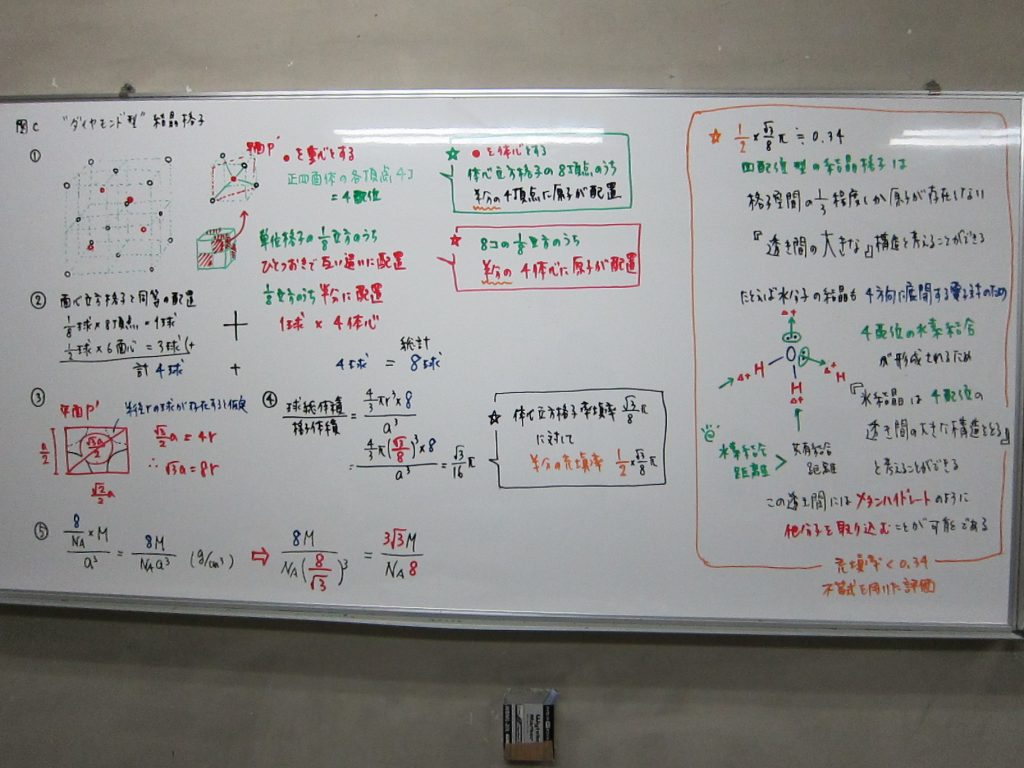 図C "ダイヤモンド型" 結晶格子
①
平面P'
●を重心とする
正四面体の各頂点4コ
=4配位
単位格子の1/8立方のうち
ひとつおきで互い違いに配置
1/8立方のうち 半分に配置
1球 × 4体心
☆ ●を体心とする
体心立方格子の8頂点のうち
半分の4頂点に原子が配置
☆ 8コの1/8立方のうち
半分の 4体心に原子が配置
② 面心立方格子と同等の配置
1/8球×8頂点 = 1球
1/2球×6面心 = 3球 (+
計 4球 + 4球 = 8球
総計
③ 平面P' 半径rの球が存在すると仮定
a/2
√3a/2
√2/2 a
√3/2 a = 4r
∴ √3a = 8r
④ 球総体積/格子体積 = (4/3 πr³×8)/a³
= (4/3 π(√3/8)³×8)/a³ = √3/16 π
☆ 体心立方格子充填率 √3/8 π
に対して
半分の充填率 1/2×√3/8 π
⑤ (8/NA × M)/a³ = 8M/NAa³ (g/cm³) ⇨ 8M/NA(8/√3)³ = 3√3M/NA8
☆ 1/2×√3/8 π ≒ 0.34
四配位型の結晶格子は
格子空間の1/3程度しか原子が存在しない
『透き間の大きな』構造と考えることができる
たとえば水分子の結晶も 4方向に展開する電子対のため
4配位の水素結合
が形成されるため
δ+
O
H
δ+
H
δ+
H
δ+
『氷結晶は 4配位の
透き間の大きな構造をとる』
と考えることができる
水素結合距離 > 共有結合距離
この透き間には メタンハイドレートのように
他分子を取り込むことが可能である
充填率<0.34
不等式を用いた評価